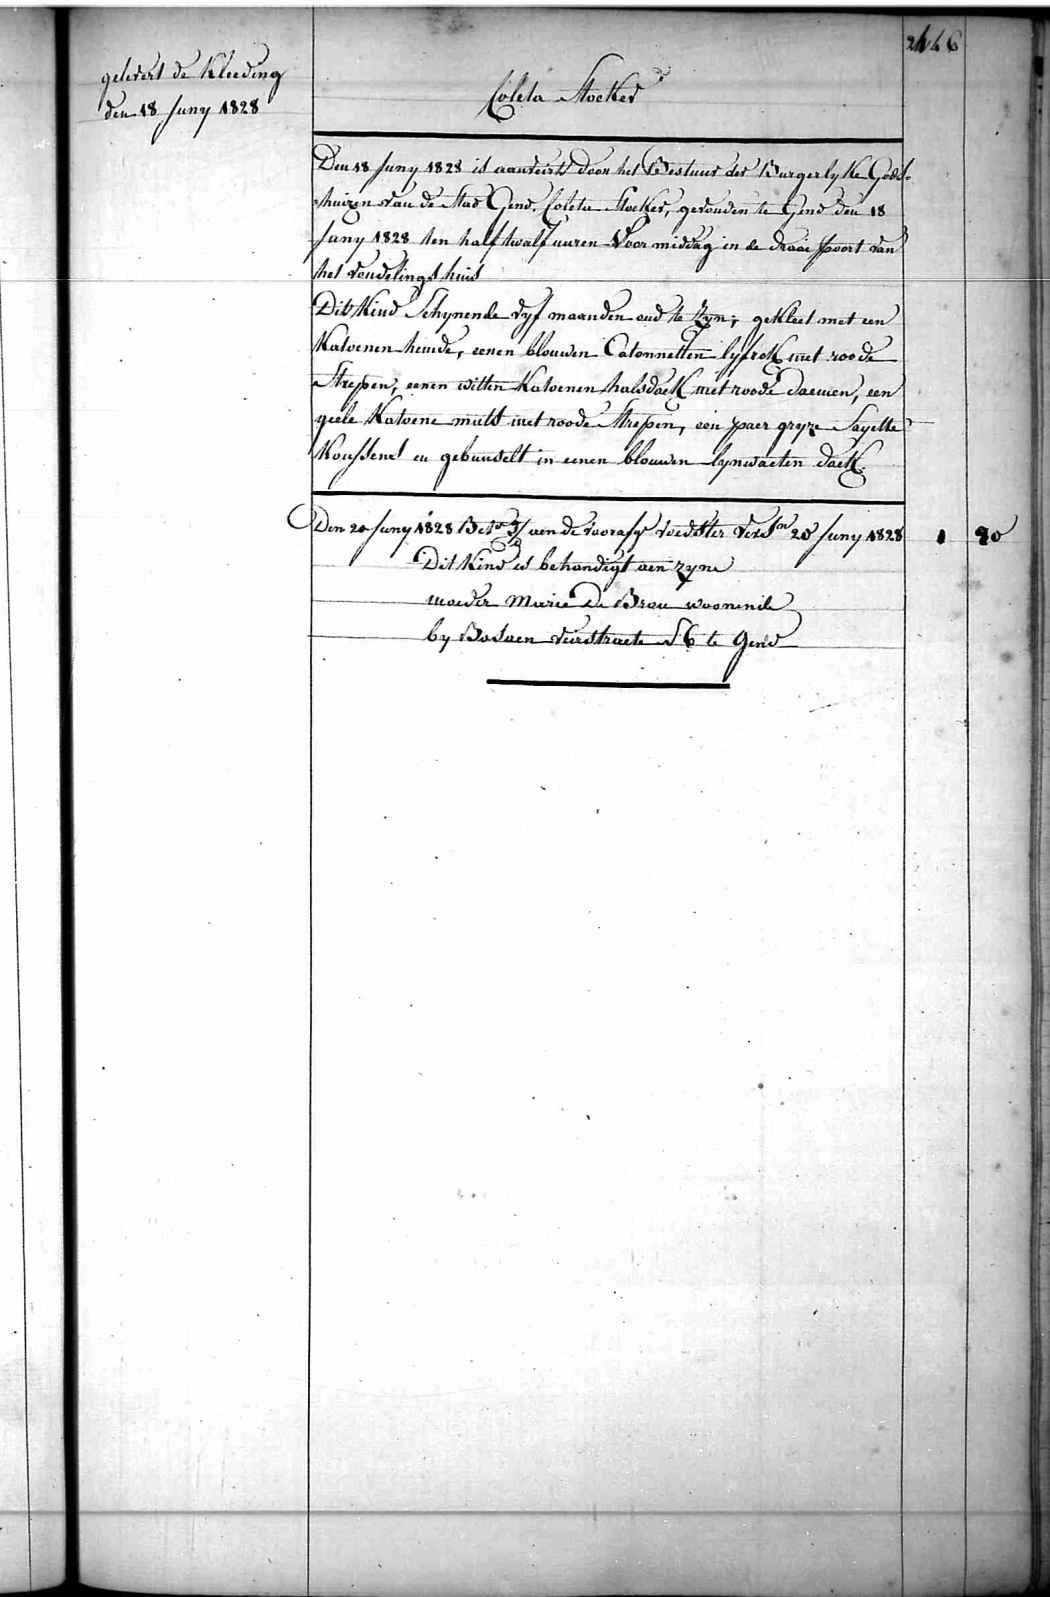 2466
gelevert de Kleeding
den 18 Juny 1828
Coleta Stoeker
Den 18 Juny 1828 is aanveirt door het Bestuur der Burgerlyke Gods-
huizen van de Stad Gend. Coleta Stoeker, gevonden te Gend den 18
Juny 1828 ten half twalf uuren Voor middag in de draai poort van
het vondelings huis
Dit Kind Schynende vyf maanden oud te Zyn; gekleet met een
Katoenen hemde, eenen blouwen Catonnetten lyfrok met roode
Strepen, eenen witten Katoenen halsdoek met roode daemen, een
geele Katoene muts met roode Strepen, een paer gryze Sayette
Koussens en gebunselt in eenen blouwen lynwaeten doek.
Den 20 Juny 1828 aen de voorafg voedster 20 Juny 1828 1 20
Dit Kind is behandigt aen zyne
moeder Marie De Brau woonende
by Veirstraete S6 te Gend